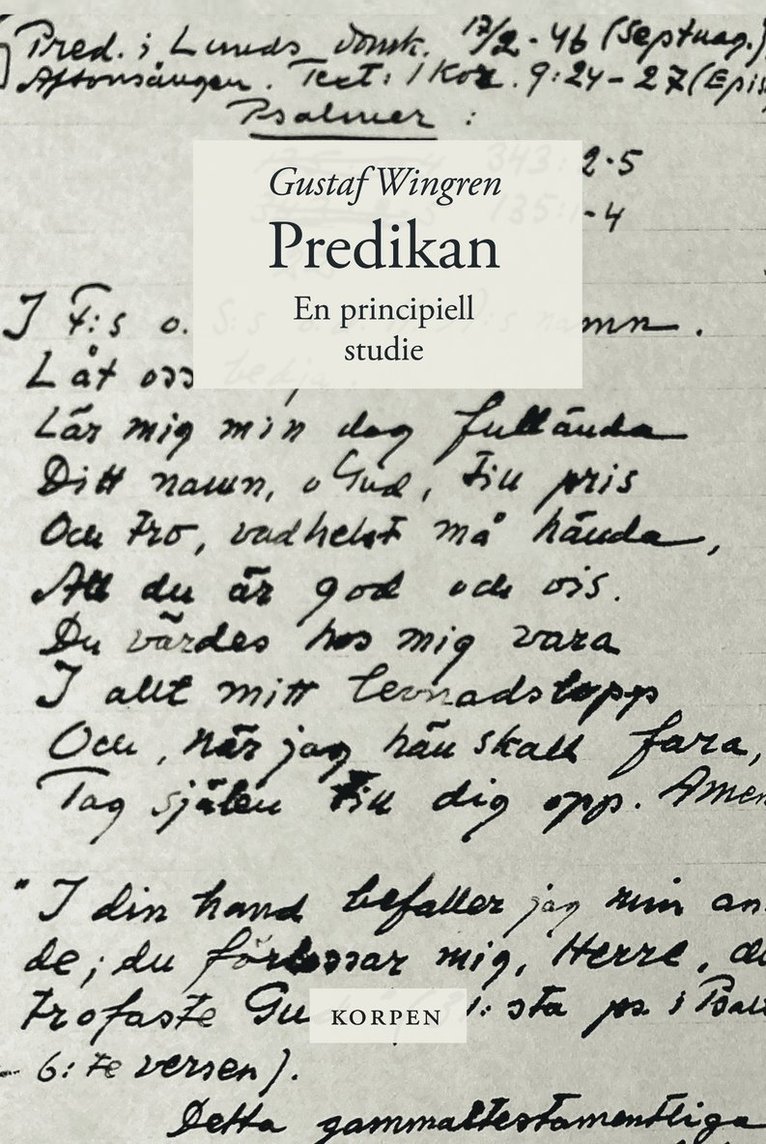 Pred. i Lunds domk. 17/2 - 46 (Septuag.)
Aftonsången. Text: 1 Kor. 9:24-27 (Epis
Psalmer:
343: 2-5
135: 1-4
Gustaf Wingren
Predikan
En principiell
studie
I F:s o. S:s namn.
Låt oss bedja.
Lär mig min dag fullända
Ditt namn, o Gud, till pris
Och tro, vadhelst må hända,
Att du är god och vis.
Du värdes hos mig vara
I allt mitt levnadslopp
Och, när jag hän skall fara,
Tag själen till dig opp. Amen
"I din hand befaller jag min an-
de; du förlossar mig, Herre, du
trofaste Gu 31: sta ps. i Psal
KORPEN
- 6: te versen).
Detta gammaltestamentliga